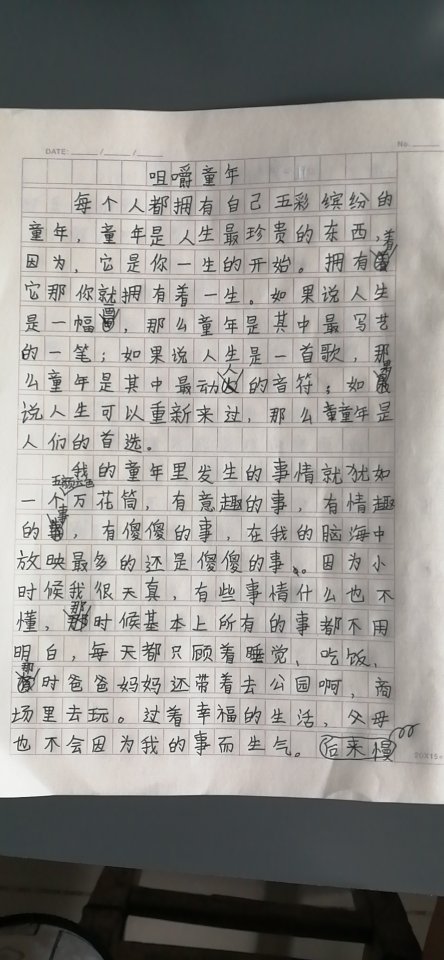 DATE: ___/___/___ No. ___
咀嚼童年
每个人都拥有自己五彩缤纷的
童年，童年是人生最珍贵的东西，
因为，它是你一生的开始。拥有着
它那你就拥有着一生。如果说人生
是一幅画，那么童年是其中最写艺
的一笔；如果说人生是一首歌，那
么童年是其中最动人的音符；如果
说人生可以重新来过，那么童童年是
人们的首选。
我的童年里发生的事情就犹如
一个五颜六色万花筒，有意趣的事，有情趣
的事，有傻傻的事，在我的脑海中
放映最多的还是傻傻的事、。因为小
时候我很天真，有些事情什么也不
懂，那时候基本上所有的事都不用
明白，每天都只顾着睡觉、吃饭、
那时爸爸妈妈还带着去公园啊，商
场里去玩。过着幸福的生活，父母
也不会因为我的事而生气。后来慢
20X15=